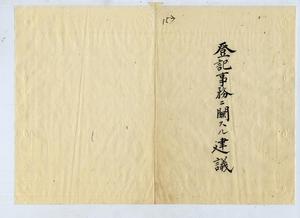 登記事務ニ関スル建議